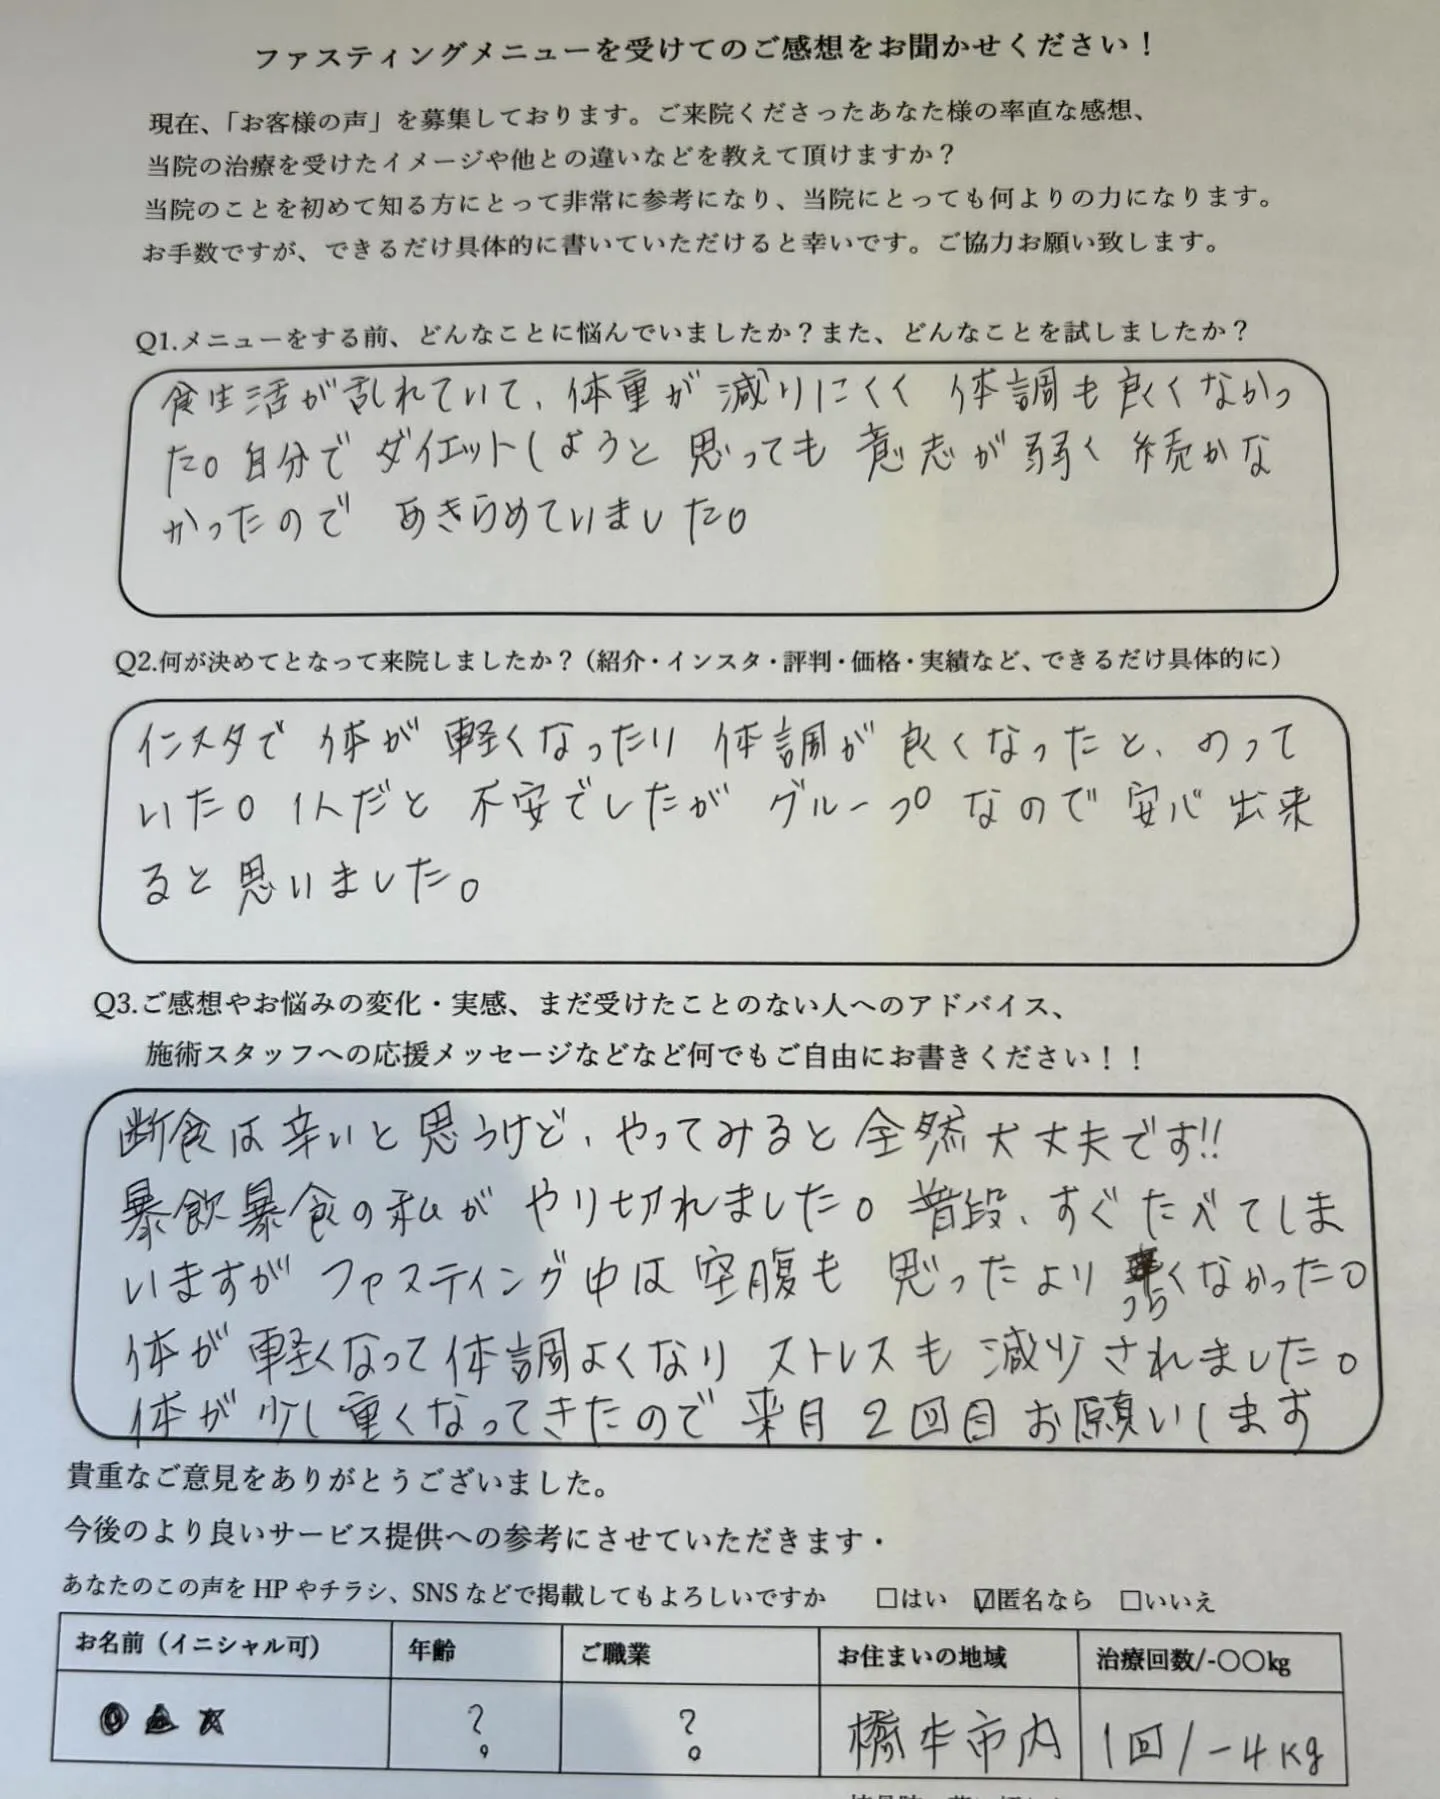 ファスティングメニューを受けてのご感想をお聞かせください！
現在、「お客様の声」を募集しております。ご来院くださったあなた様の率直な感想、
当院の治療を受けたイメージや他との違いなどを教えて頂けますか？
当院のことを初めて知る方にとって非常に参考になり、当院にとっても何よりの力になります。
お手数ですが、できるだけ具体的に書いていただけると幸いです。ご協力お願い致します。
Q1.メニューをする前、どんなことに悩んでいましたか？また、どんなことを試しましたか？
食生活が乱れていて、体重が減りにくく 体調も良くなかっ
た。自分で ダイエットしようと 思っても 意志が弱く 続かな
かったので あきらめていました。
Q2.何が決めてとなって来院しましたか？（紹介・インスタ・評判・価格・実績など、できるだけ具体的に）
インスタで 体が 軽くなったり 体調が 良くなったと、のって
いた。1人だと 不安でしたが グループ なので 安心 出来
ると 思いました。
Q3.ご感想やお悩みの変化・実感、まだ受けたことのない人へのアドバイス、
施術スタッフへの応援メッセージなどなど何でもご自由にお書きください！！
断食は辛いと思うけど、やってみると全然大丈夫です!!
暴飲暴食の私が やり切れました。普段、すぐたべてしま
いますが ファスティング中は 空腹も 思ったより つらくなかった。
体が 軽くなって体調よくなり ストレスも 減少されました。
体が 少し 重くなってきたので 来月 2回目 お願いします
貴重なご意見をありがとうございました。
今後のより良いサービス提供への参考にさせていただきます・
あなたのこの声を HP やチラシ、SNS などで掲載してもよろしいですか □はい ☑匿名なら □いいえ
お名前（イニシャル可） 年齢 ご職業 お住まいの地域 治療回数/-〇〇kg
？ ？ 橋本市内 1回/-4kg